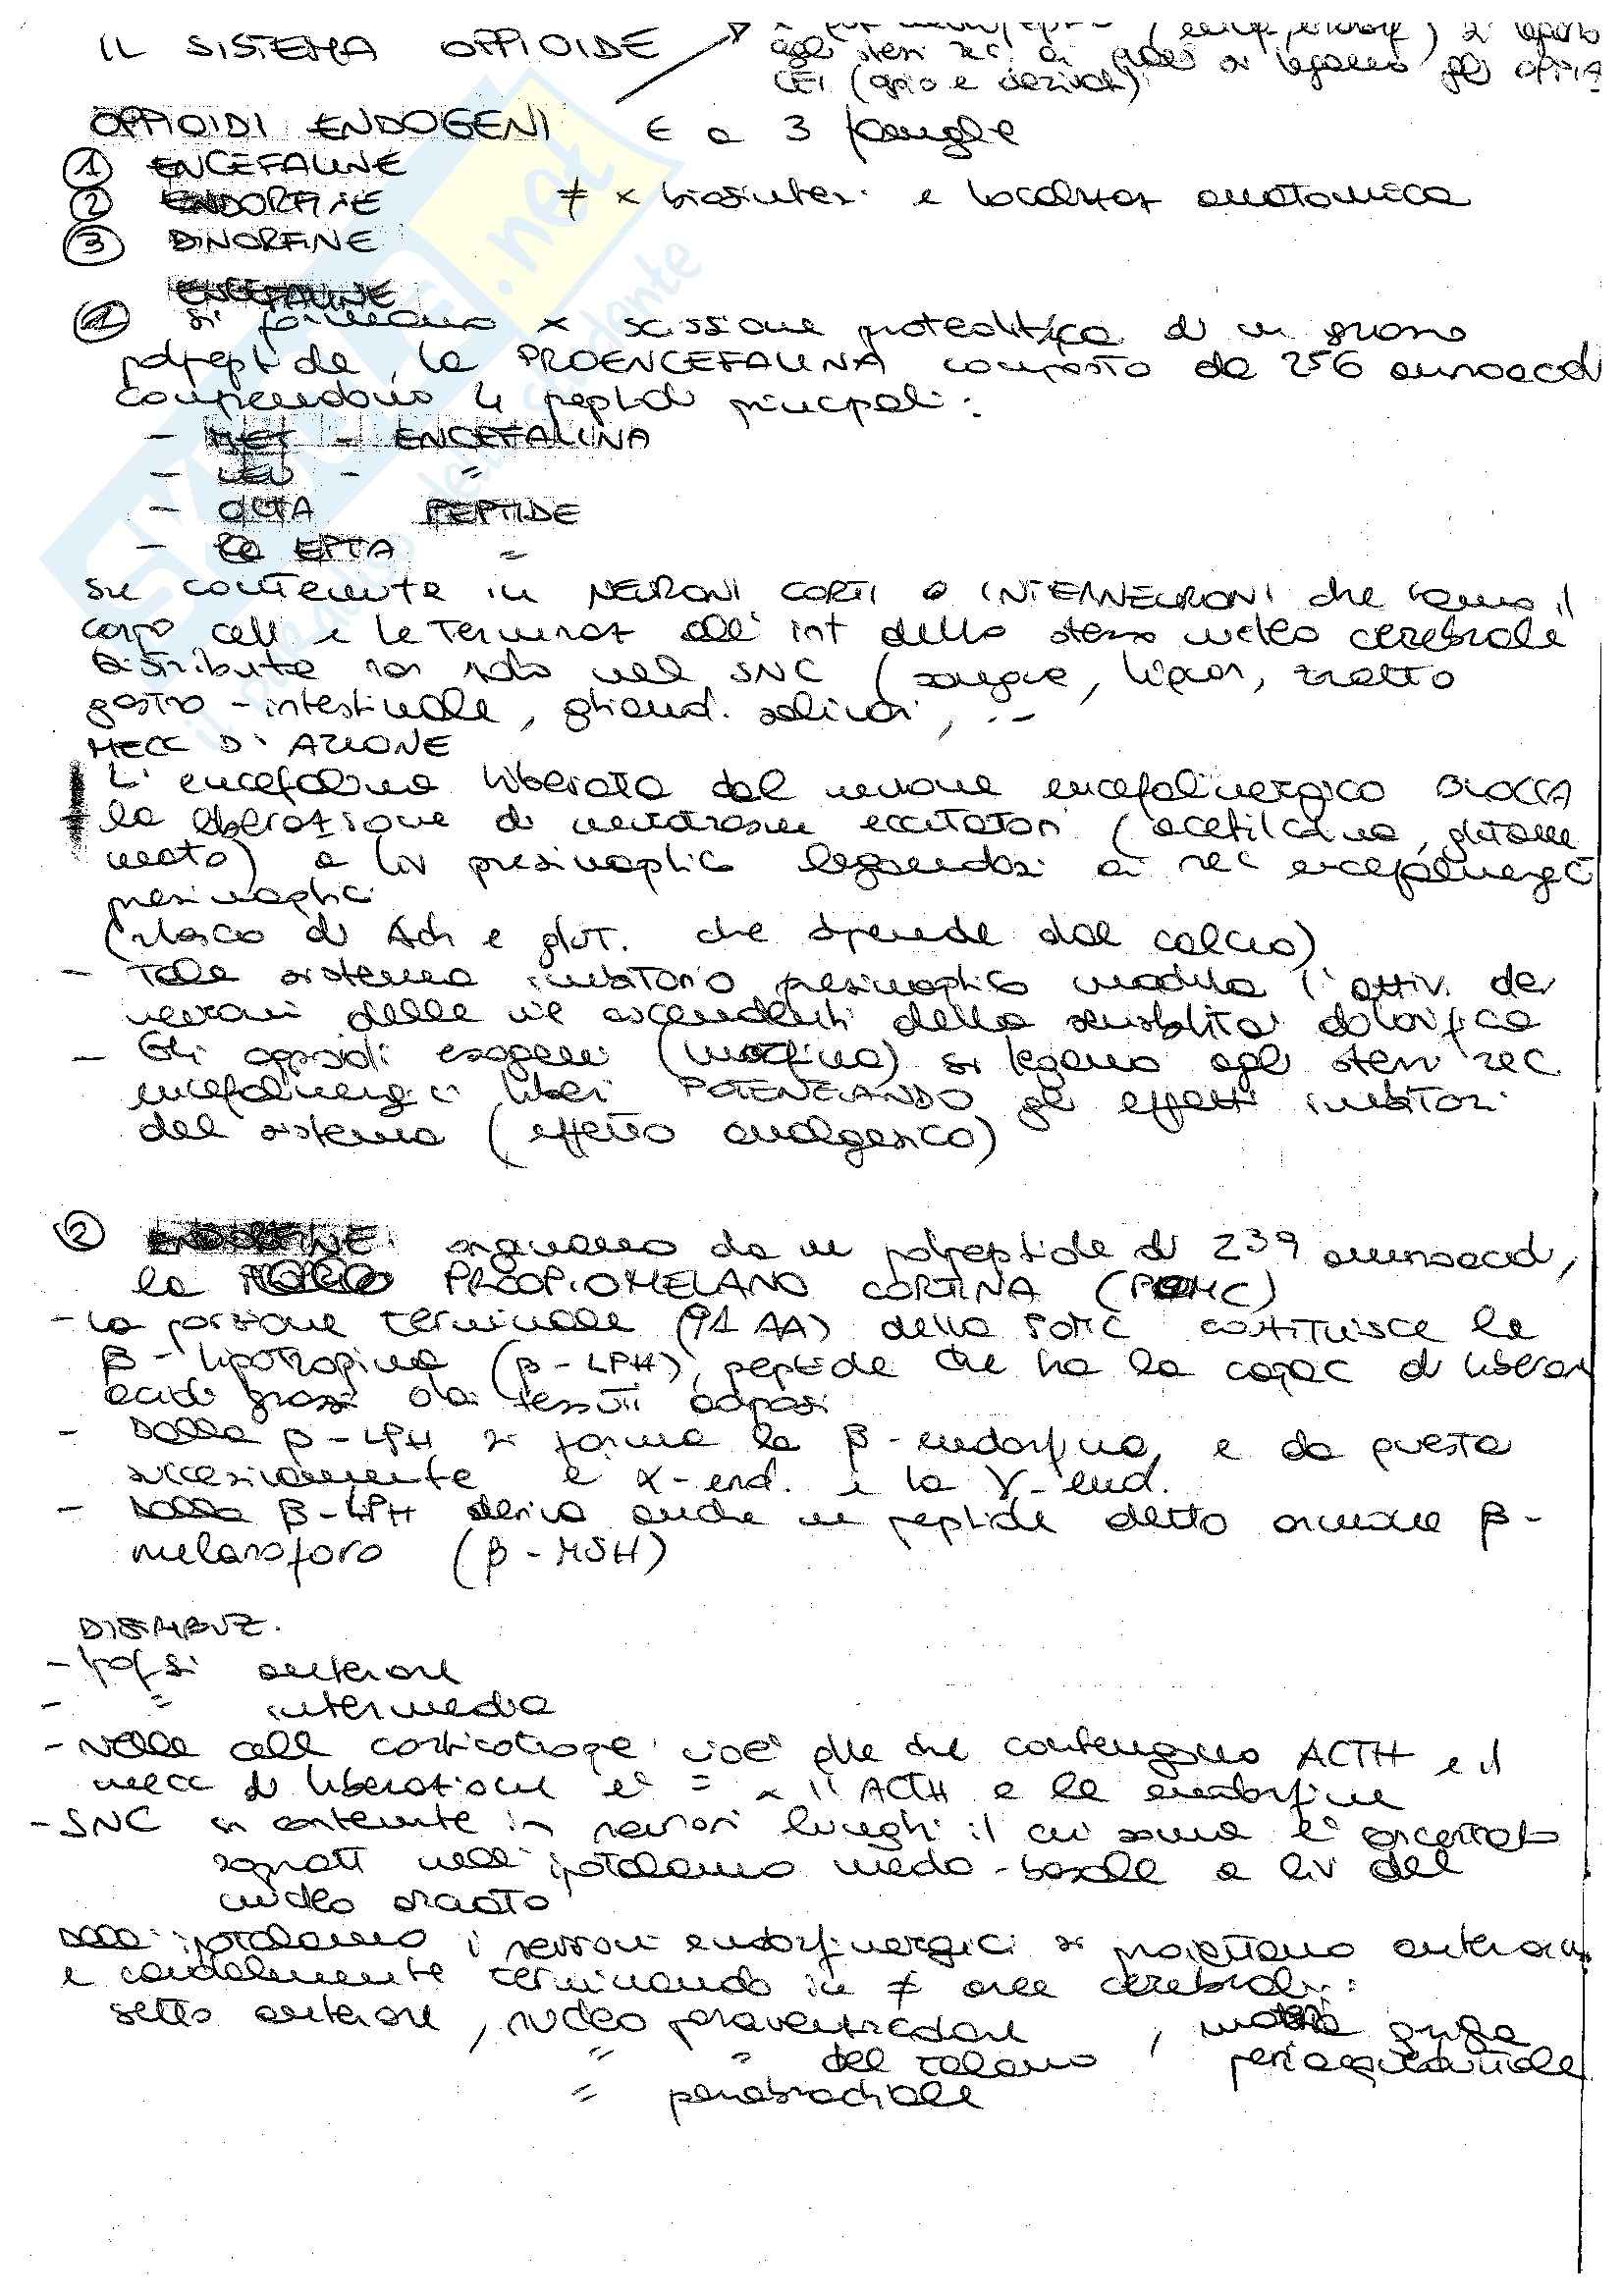 IL SISTEMA OPPIOIDE
agli stessi rec. ai quali si legano gli OPPIA
CEI (oppio e derivati)
OPPIOIDI ENDOGENI E a 3 famiglie
1 ENCEFALINE
2 ENDORFINE ≠ x biosintesi e localizzaz anatomica
3 DINORFINE
ENCEFALINE
1 si formano x scissione proteolitica di un grosso
polipeptide, la PROENCEFALINA composto da 256 aminoacidi
Comprendono 4 peptidi principali:
- MET - ENCEFALINA
- LEU - =
- OCTA PEPTIDE
- EPTA =
contenute in NEURONI CORTI o INTERNEURONI che hanno il
corpo cell e le Terminaz all' int dello stesso nucleo cerebrale
Distribuite non solo nel SNC (sangue, liquor, tratto
gastro-intestinale, ghiand. salivari, ..
MECC D'AZIONE
L'encefalina liberata dal neurone encefalinergico BLOCCA
la liberazione di neurotrasm eccitatori (acetilcolina, glutam
mato) a liv presinaptico legandosi ai rec encefalinergici
presinaptici
(rilascio di Ach e glut. che dipende dal calcio)
- Tale sistema inibitorio presinaptico modula l'attiv. dei
neuroni delle vie ascendenti della sensibilità dolorifica
- Gli oppioidi esogeni (morfina) si legano agli stessi rec.
encefalinergici liberi POTENZIANDO gli effetti inibitori
del sistema (effetto analgesico)
2 ENDORFINE: originano da un polipeptide di 239 aminoacidi,
la PROOPIOMELANO CORTINA (POMC)
- La porzione terminale (91 AA) della POMC costituisce la
β-lipotropina (β-LPH), peptide che ha la capac di liberare
acidi grassi dai tessuti adiposi
- Dalla β-LPH si forma la β-endorfina, e da questa
successivamente α-end. e la γ-end.
- Dalla β-LPH deriva anche un peptide detto ormone β-
melanoforo (β-MSH)
DISTRIBUZ.
- Ipofisi anteriore
- = intermedia
- Nelle cell corticotrope cioè quelle che contengono ACTH e il
mecc di liberazione è = x l'ACTH e le endorfine
- SNC contenute in neuroni lunghi il cui soma è
nell'ipotalamo medio-basale a liv del
nucleo arcuato
Dall'ipotalamo i neuroni endorfinergici si proiettano anteriorm.
e caudalmente terminando in ≠ aree cerebrali:
setto anteriore, nucleo paraventricolare, materia grigia
" " del talamo, periacqueduttale
= parabrachiale